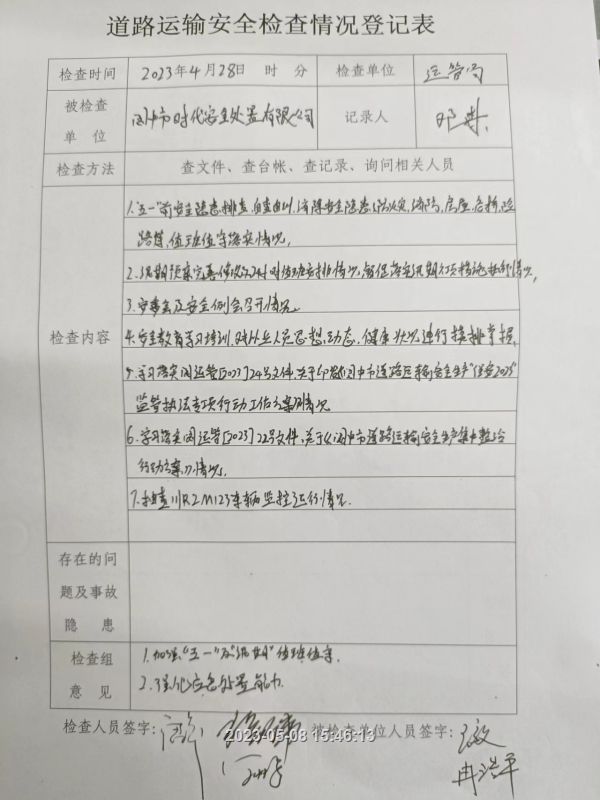 道路运输安全检查情况登记表
检查时间 2023年4月28日 时 分 检查单位 运管局
被检查单位 阆中市时代客运处置有限公司 记录人
检查方法 查文件、查台帐、查记录、询问相关人员
检查内容
1."五一"前安全隐患排查,自查自纠,消除安全隐患,防火灾,消防,房屋,危桥,险
路等,值班值守落实情况。
2.汛期预案完善修改及时 情况,
3. 安全例会召开情况。
4.安全教育学习培训,对从业人员思想,动态,健康状况进行摸排掌握。
5.学习落实阆运管[2023]24号文件,关于印发《阆中市道路运输安全生产
监管执法专项行动工作方案》情况
6.学习落实阆运管[2023]22号文件,关于《阆中市道路运输安全生产集中整治
行动方案》情况。
7.抽查川R2M123车辆监控运行情况.
存在的问
题及事故
隐 患
检查组
意 见
1.加强"五一"及"汛期"值班值守.
2.强化应急处置能力.
检查人员签字: 被检查单位人员签字:
2023-05-08 15:46:13